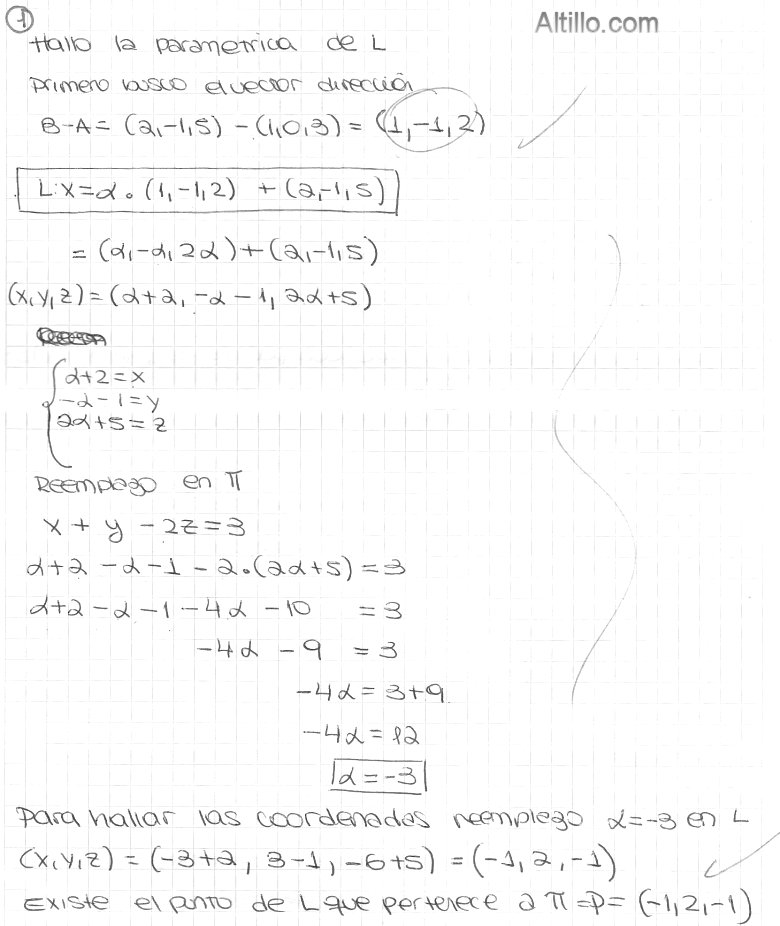 Altillo.com
1
Hallo la parametrica de L
Primero busco el vector dirección
B-A = (2,-1,5) - (1,0,3) = (1,-1,2)
L: X = α . (1,-1,2) + (2,-1,5)
= (α,-α,2α) + (2,-1,5)
(x,y,z) = (α+2, -α-1, 2α+5)
α+2 = x
-α-1 = y
2α+5 = z
Reemplazo en π
x + y - 2z = 3
α+2 -α-1 - 2.(2α+5) = 3
α+2 -α-1 -4α -10 = 3
-4α - 9 = 3
-4α = 3+9
-4α = 12
α = -3
Para hallar las coordenadas reemplazo α=-3 en L
(x,y,z) = (-3+2, 3-1, -6+5) = (-1,2,-1)
Existe el punto de L que pertenece a π = P = (-1,2,-1)